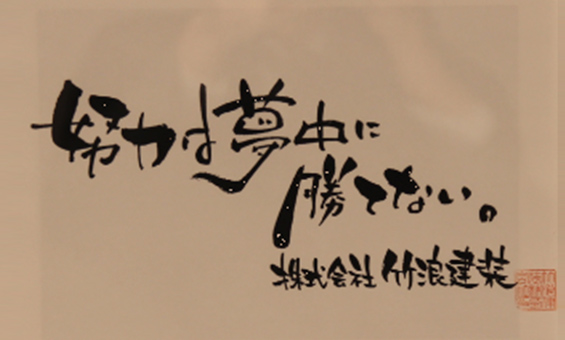 努力は夢中に
勝てない。
株式会社 竹浪建装